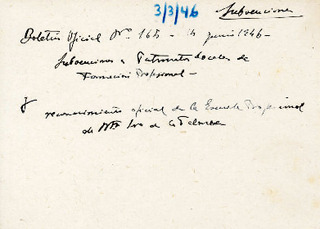 3/3/46
Subvenciones
Boletín Oficial Nº. 165 - 14 junio 1946 -
Subvenciones a Patronatos Locales de
Formación Profesional -
y reconocimiento oficial de la Escuela Profesional
de Ntra Sra de la Palma